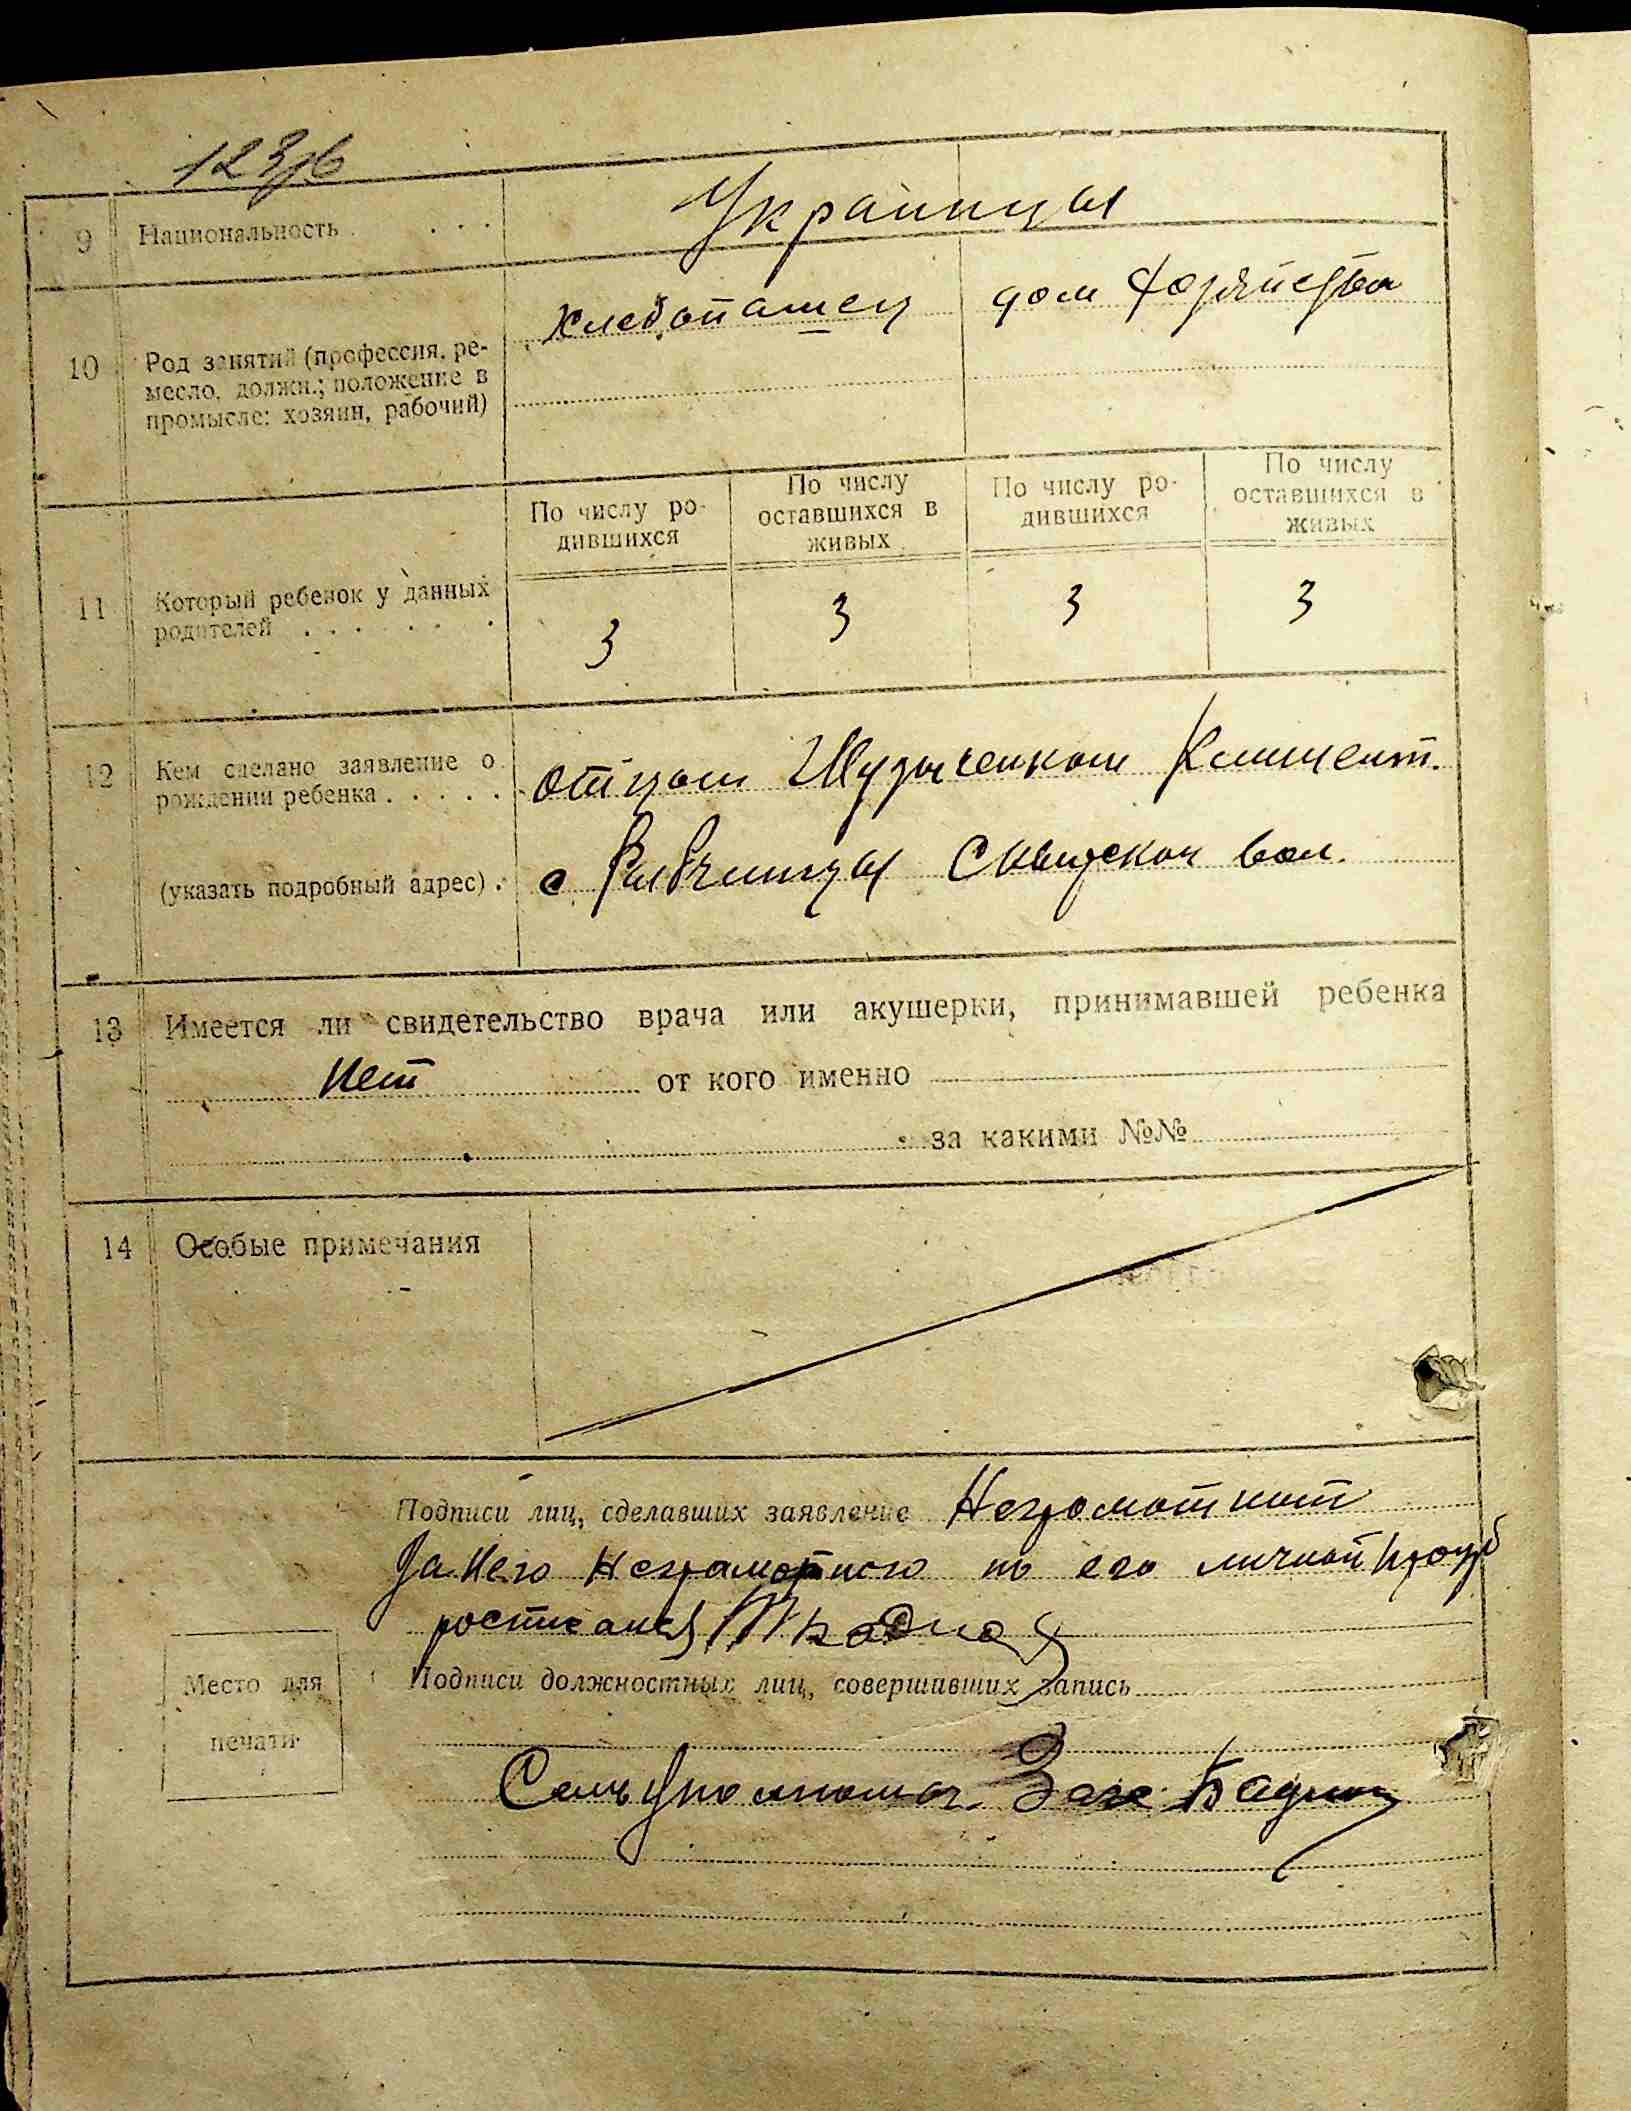 9 Национальность . . . . Украинцы
10 Род занятий (профессия, ре-
месло, должн.; положение в
промысле: хозяин, рабочий)
Хлебопашец дом хозяйства
11 Который ребенок у данных
родителей . . . . . . .
По числу ро-
дившихся
По числу
оставшихся в
живых
По числу ро-
дившихся
По числу
оставшихся в
живых
3 3 3 3
12 Кем сделано заявление о
рождении ребенка . . . . .
(указать подробный адрес) .
отцом Климент.
с вол.
13 Имеется ли свидетельство врача или акушерки, принимавшей ребенка
Нет от кого именно
за какими №№
14 Особые примечания
Подписи лиц, сделавших заявление Неграмотный
За него неграмотного по его личной
Место для
печати
Подписи должностных лиц, совершивших запись